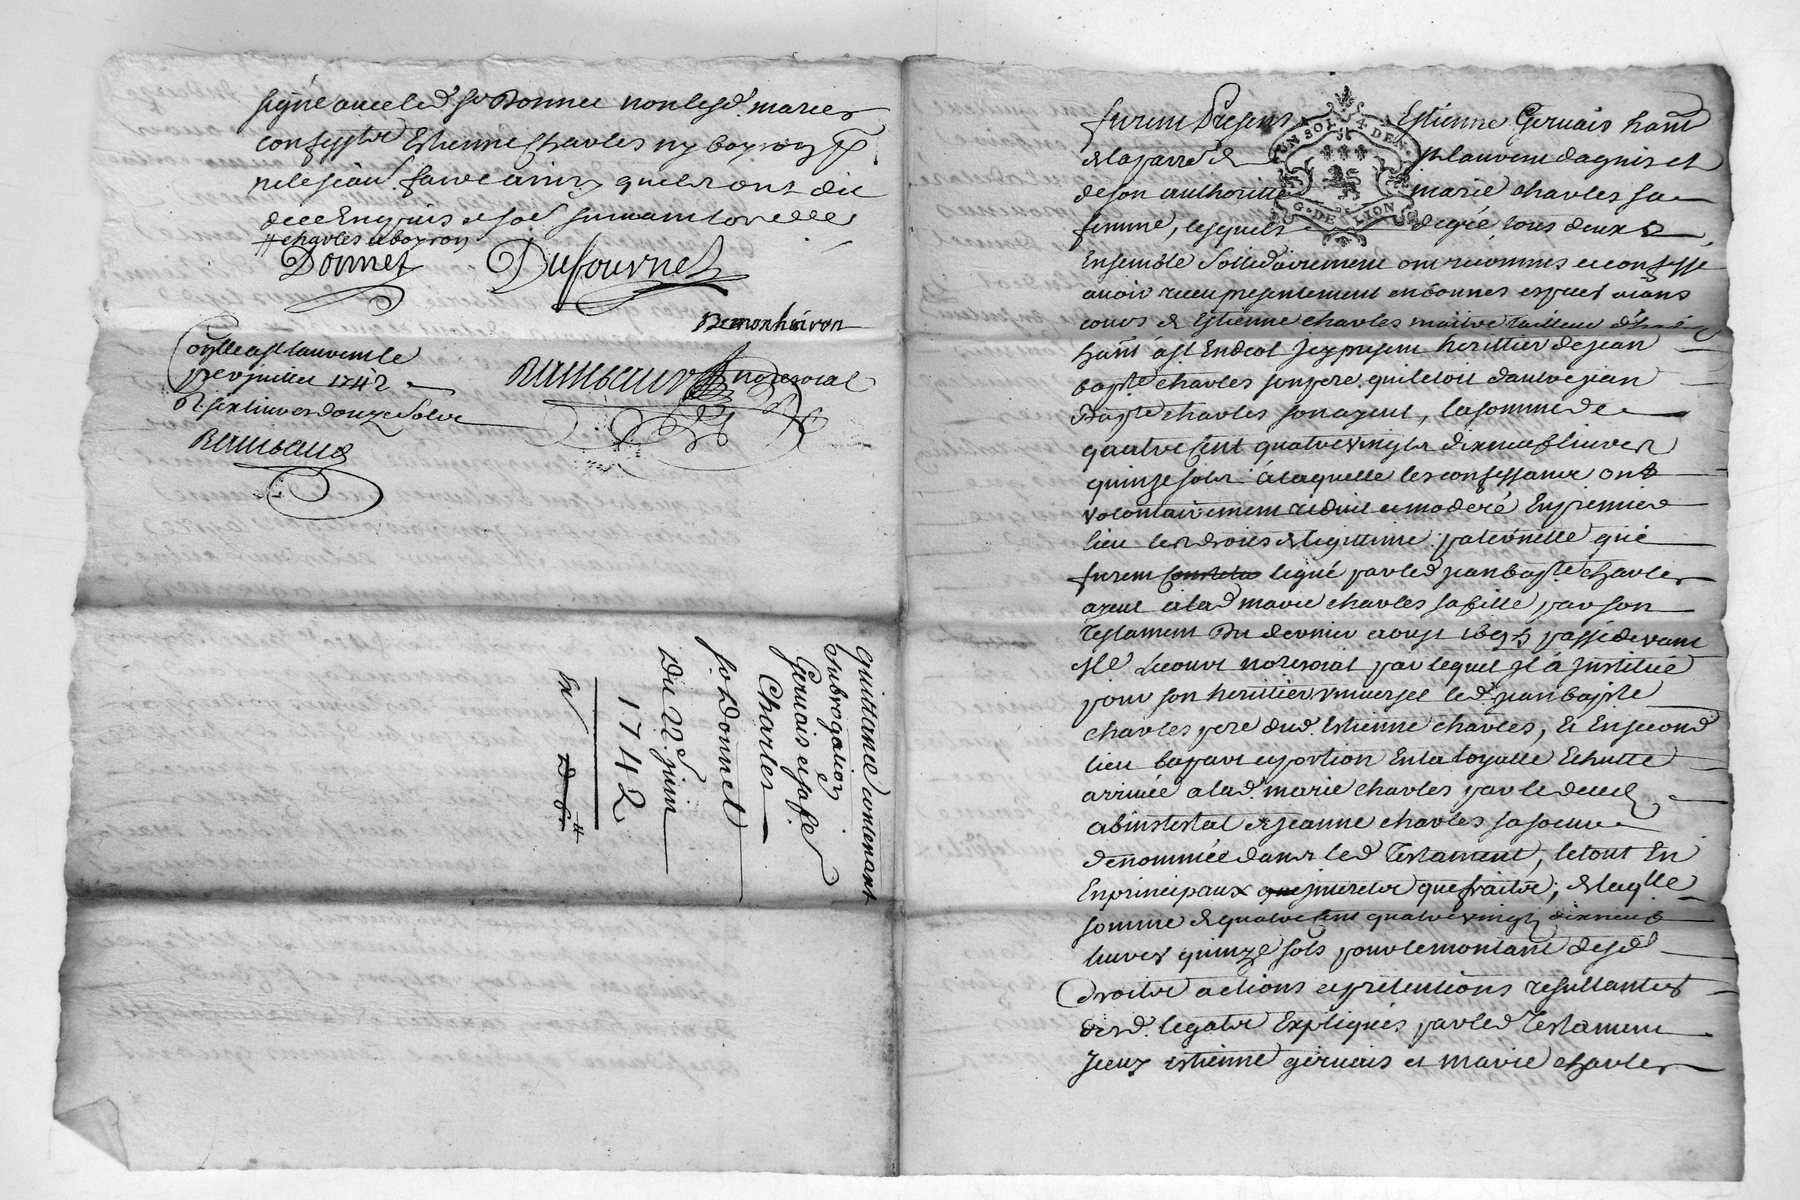 signé avec led. Sr Donnet non lesd. mariés
confess. Estienne Charles ny boyron
de ce Enquis et
charles et boyron
Donnet
Dufournel
Demonheiron
Rambaud no.re royal
premier juillet 1742
R. six livres douze sols
Rambaud
quittance contenant
subrogation
Gervais et sa fe
Charles
Sr Donnet
Du 22e juin
1742
furent Presens Estienne Gervais hant
UN SOL 4 DEN.
G. DE LION
de laparre de St laurent dagnis et
de son authoritté marie charles sa
femme, lesquels de gré tous deux
Ensemble sollidairement ont reconnus et confessé
avoir receu presentement en bonnes especes
cours de Estienne charles maitre tailleur d'h
hant Jcy present herittier de jean
bapte charles son pere, quil etoit d'autre jean
Bapte charles son ayeul, la somme de
quatre cent quatre vingts dix neuf livres
quinze sols à laquelle les confessants ont
volontairement reduit et moderé En premier
lieu les droits de legittime paternelle qui
furent legué par led. jean bapte charles
ayeul à lad. marie charles sa fille par son
Testament Du dernier aoust 1695 passé devant
Me Lecourt no.re royal par lequel Jl à Jnstitué
pour son herittier universel led. jean bapte
charles pere dud. Estienne charles, & En second
lieu sa part et portion En la loyalle Echutte
arrivée a lad. marie charles par le decedz
abintestat de jeanne charles sa soeur
denommée dans led. Testament, le tout En
En principaux jnterets que fraits, de laqlle
somme de quatre cent quatre vingt dix neuf
livres quinze sols pour le montant desd.
droits actions et pretentions resultantes
desd. legats Expliqués par led. Testament
Jceux Estienne gervais et marie charles